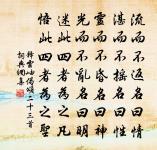 湛而不搖名曰性
流而不返名曰情
靈而不昏名曰神
光而不亂名曰明
迷此四者爲之凡
悟此四者爲之聖
釋雲岫偈頌二十三首
詞典網集